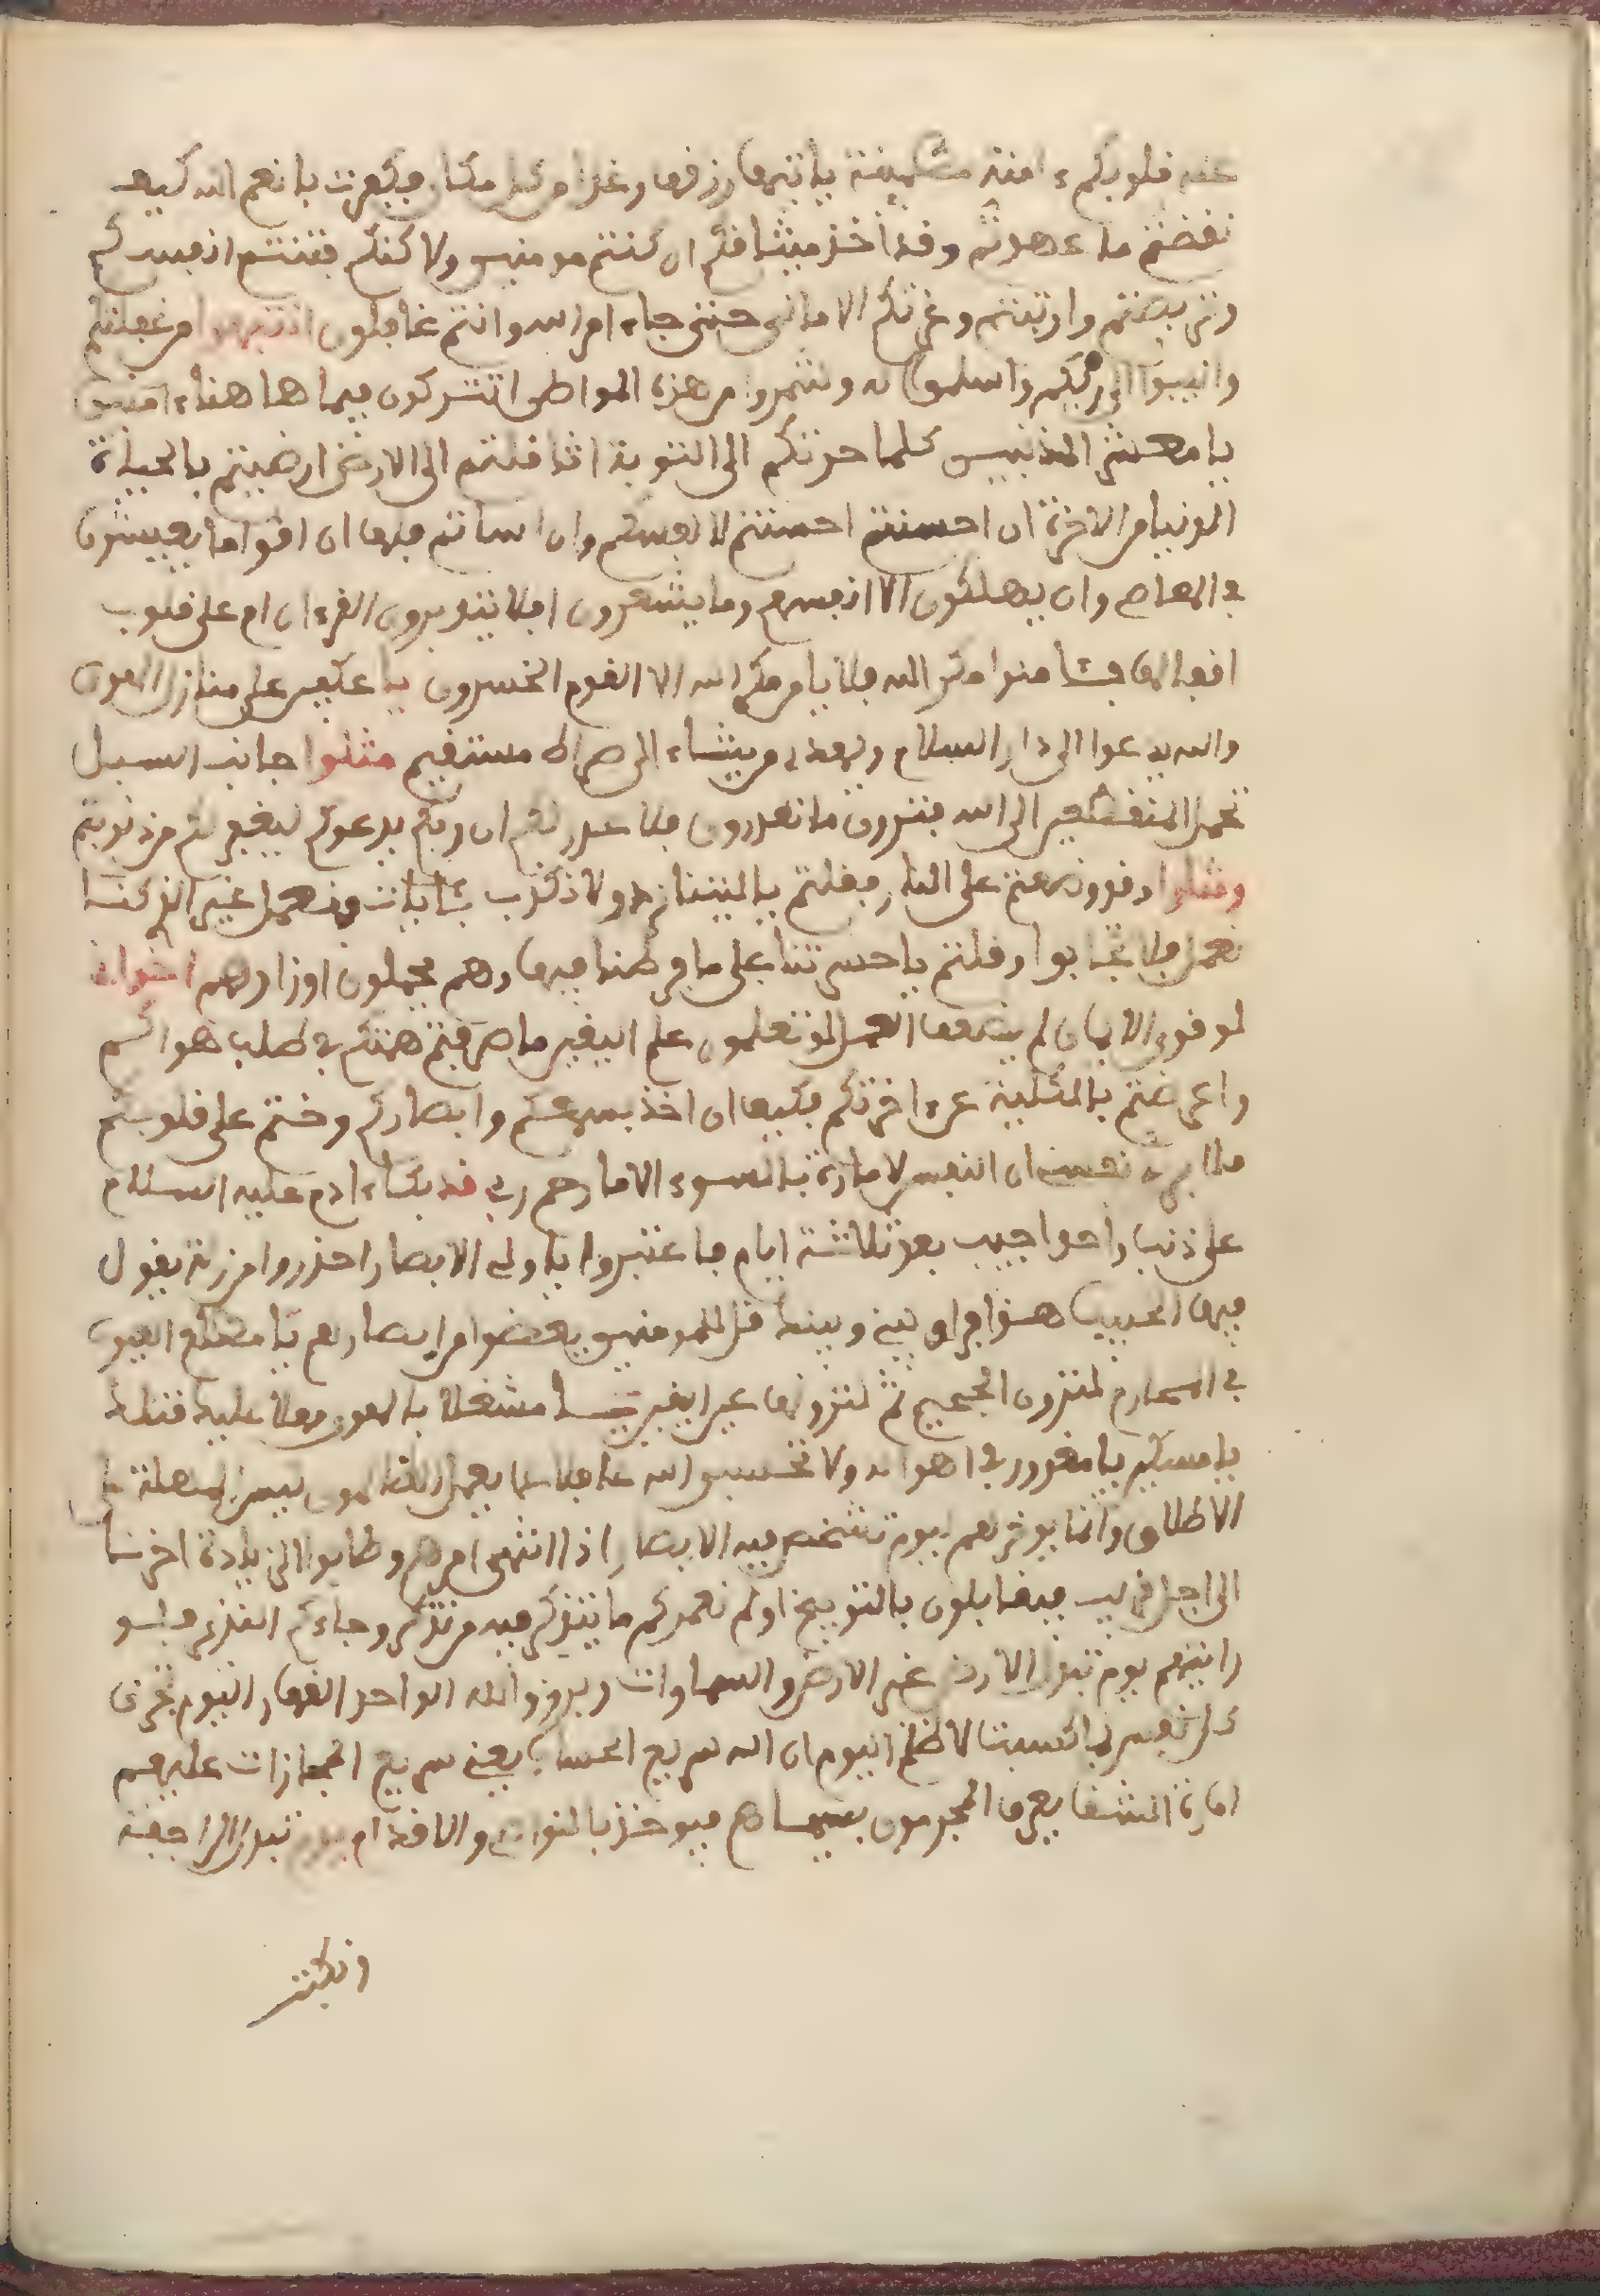 عند قلوبكم ءامنة مطمئنة ياتيها رزقها رغدا من كل مكان فكفرت بانعم الله كيف
نقضتم ما عهدتم وقد اخذ ميثاقكم ان كنتم مومنين ولاكنكم فتنتم انفسكم
وتربصتم وارتبتم وغرتكم الاماني حتى جاء امر الله وانتم غافلون انتبهوا من غفلتكم
وانيبوا الى ربكم واسلموا له وشمروا من هذه المواطن اتتركون فيما هاهنا ءامنين
يا معشر المذنبين كلما حرتكم الى التوبة اثاقلتم الى الارض ارضيتم بالحياة
الدنيا من الاخرة ان احسنتم احسنتم لانفسكم وان اساتم فلها ان اقواما يعيشون
في المعاصي وان يهلكون الا انفسهم وما يشعرون افلا يتدبرون القرءان ام على قلوب
اقفالها فتامنوا مكر الله فلا يامن مكر الله الا القوم الخسرون يا عاكفين على منازل الهوى
والله يدعوا الى دار السلام ويهدي من يشاء الى صراط مستقيم مثلوا جانب السبيل
نحمل المنقطعين الى الله فتردون ما تعدرون فلا عدر لكم ان ربكم يدعوكم ليغفر لكم من ذنوبكم
ومثلوا وقد وقفتم على النار فقلتم ياليتنا نرد ولا نكذب بئايات ونعمل غير الذي كنا
نعمل فلا تجابوا وقلتم يا حسرتنا على ما فرطنا فيها وهم يحملون اوزارهم اخواني
لو قوي الايمان لم ينفعها العمل لو تعلمون علم اليقين ما صرفتم همتكم في طلب هواكم
واعرضتم بالكلية عن ءاخرتكم فكيف ان اخذ سمعكم وابصاركم وختم على قلوبكم
فلا ابرئ نفسي ان النفس لامارة بالسوء الا ما رحم ربي قد بكاء ادم عليه السلام
على ذنب واحد اجيب بعد ثلاثة ايام فاعتبروا ياولي الابصار احذروا من زلة يقول
فيها الحبيب هذا فراق بيني وبينك قل للمومنين يغضوا من ابصارهم يا مطلع العيون
في المحارم لترون الجحيم ثم لترونها عين اليقين يا مشغلا بالهوى مهلا عليك قتلك
يا مسكين يا مغرور في اهوائه ولا تحسبن الله غافلا عما يعمل الظالمون ليس المهلة على
الاطلاق وانما يوخرهم ليوم تشخص فيه الابصار اذا انتهى امرهم وطلبوا الزيادة اخرنا
الى اجل قريب فيقابلون بالتوبيخ اولم نعمركم ما يتذكر فيه من تذكر وجاءكم النذير فلو
رايتهم يوم تبدل الارض غير الارض والسماوات وبرزوا لله الواحد القهار اليوم تجزى
كل نفس بما كسبت لا ظلم اليوم ان الله سريع الحساب يعني سريع المجازات عليهم
امارة الشقا يعرف المجرمون بسيماهم فيوخذ بالنواصي والاقدام يوم تبدل الراجفة